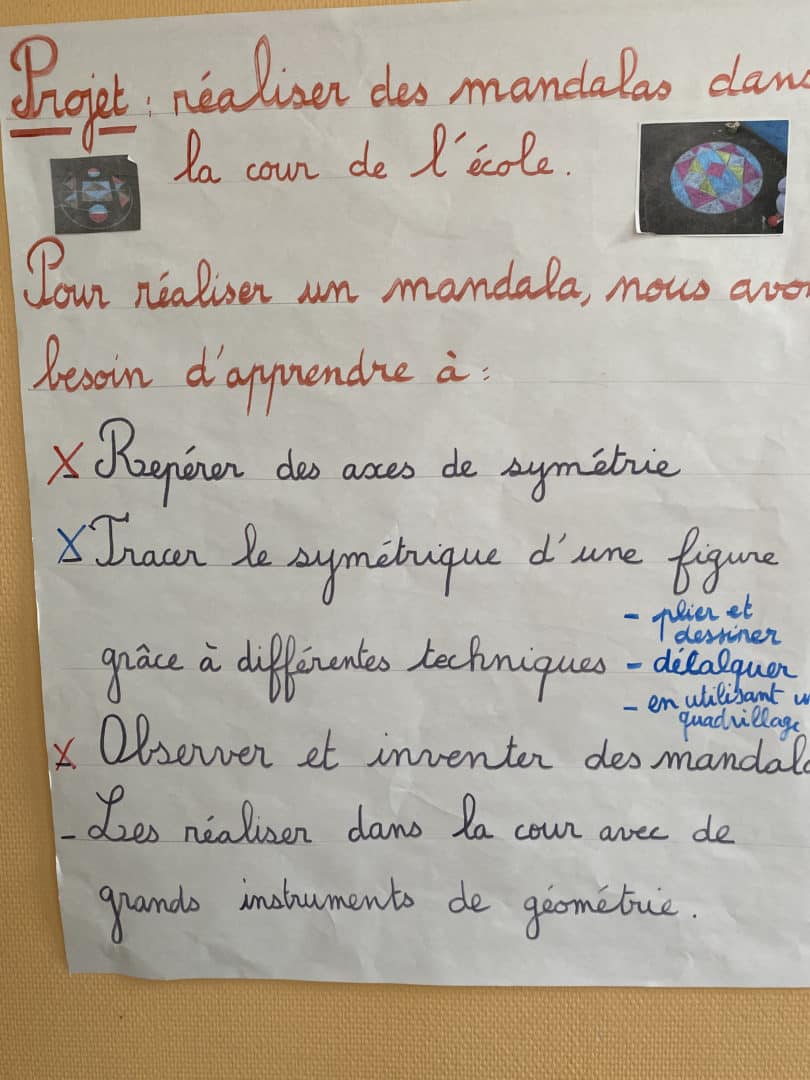 Projet : réaliser des mandalas dans
la cour de l'école.
Pour réaliser un mandala, nous avo
besoin d'apprendre à :
X Repérer des axes de symétrie
X Tracer le symétrique d'une figure
- plier et
dessiner
grâce à différentes techniques - décalquer
- en utilisant u
quadrillage
X Observer et inventer des mandala
- Les réaliser dans la cour avec de
grands instruments de géométrie.